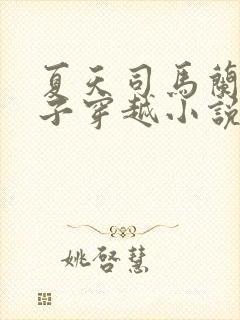 夏天司馬蘭
子穿越小說
姚啓慧